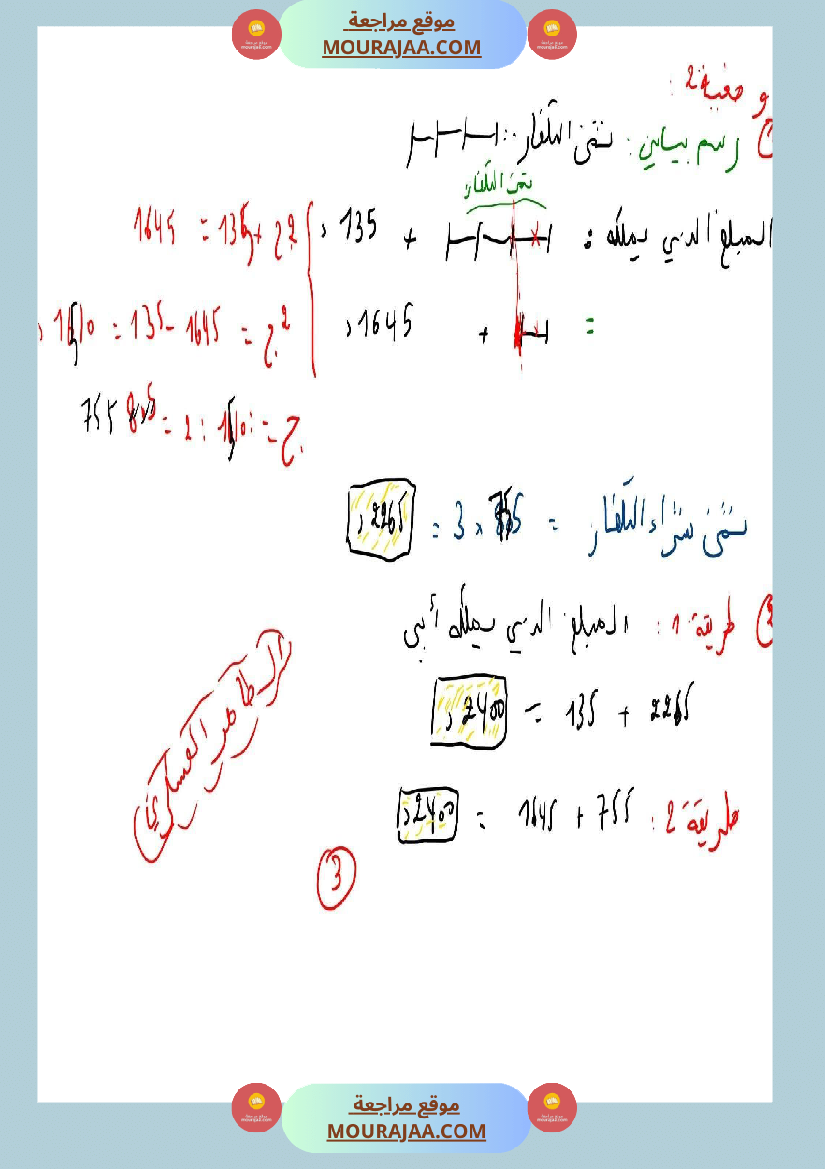 موقع مراجعة
MOURAJAA.COM
وضعية 2 :
1) رسم بياني : ثمن التلفاز :
ثمن التلفاز
المبلغ الذي يملكه : + 135 د
2 ج + 135 = 1645
= + 1645 د
2 ج = 1645 - 135 = 1510 د
ج = 1510 : 2 = 755
ثمن شراء التلفاز = 755 × 3 = 2265 د
2) طريقة 1 : المبلغ الذي يملكه أبي
2265 + 135 = 2400 د
طريقة 2 : 755 + 1645 = 2400 د
الطاهر العسكري
3
موقع مراجعة
MOURAJAA.COM